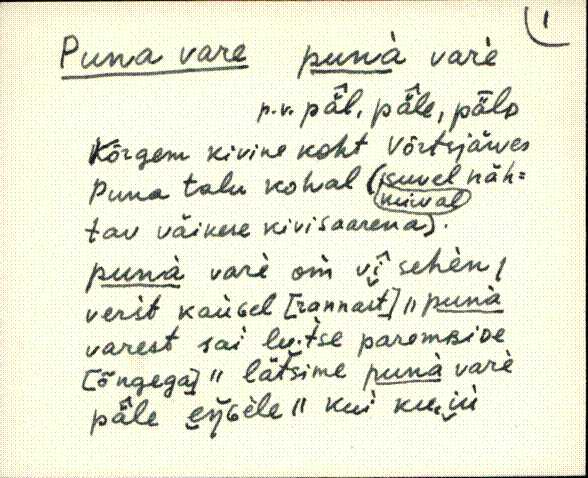 1
Puna vare punà varè
p.v. pä̂l, pä̂le, pä̂lᴅ
Kõrgem kivine koht Võrtsjärves
Puna talu kohal (suvel näh=
kuival
tav väikese kivisaarena).
punà varè om vî sehèn,
verìt kaùɢel [rannast] " punà
varest sai lu·tse parembide
[õngega] " lätsime punà varè
pä̂le eŋɢèle " kui ku·iù